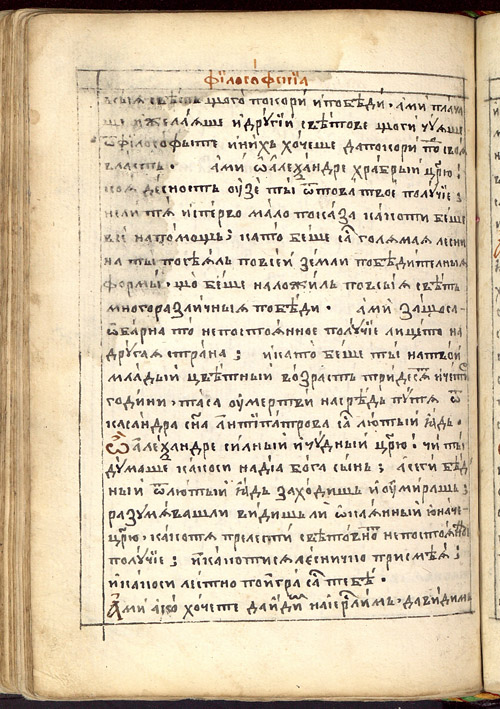 філософскїѧ
всыѧ свѣтъ щото покори и побѣди. ами плака
ще и желаѧше и другїи свѣтове щоти чуѧше
ѿ філософыте и нихъ хочеше да покори под своѧ
власть. ами ѡ алеѯандре храбрыи царю!
коѧ десность оузе ты ѿ това твое получїе;
нели тѧ исперво мало показа како ти беше
все на помощь; като беше са голямаѧ лесни
на ты посѣѧль по всеи земли побѣдителныѧ
формы, що беше наложиль по всыѧ свѣтъ
многоразличныѧ побѣди. ами защо са
ѡбарна то непостоянное получїе лицето на
другаѧ страна; и като беше ты на твои
младыи цвѣтныи возрасть тридесѧ и чети
години, така оумертви насрѣдь путѧ ѿ
касандра сна антїпатрова са лютыи ꙗдъ.
Ѽ алеѯандре силныи и чудныи царю! чи ты
думаше како си надїа бога сынь; а сеги бѣд
ныи ѿ лютыи ꙗдъ заходишь и оумирашь;
разумѧваш ли видишь ли ѡкаянныи юначе-
царю, како тѧ прелести свѣтовно непостоянно
получїе; и како ти сѧ леснично присмѣѧ;
и како си лестно поигра са тебѣ.
Ами ако хочете да идим на іерлимъ, да видимъ